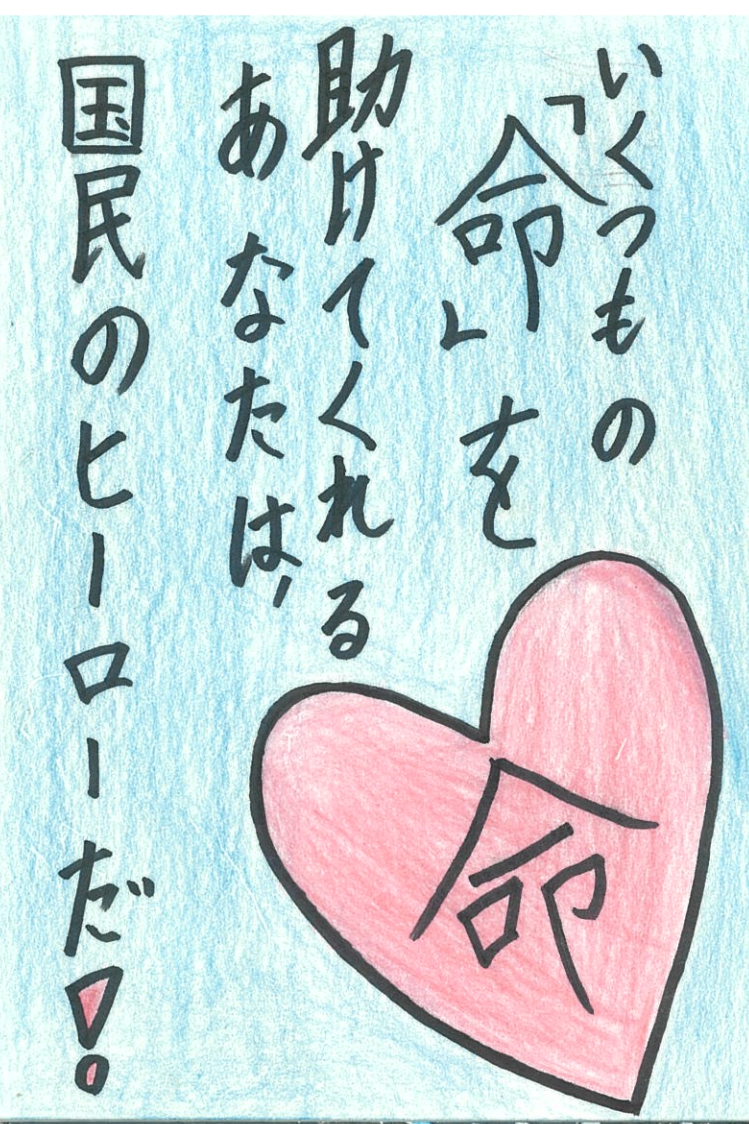 いくつもの
「命」を
助けてくれる
あなたは、
国民のヒーローだ!
命